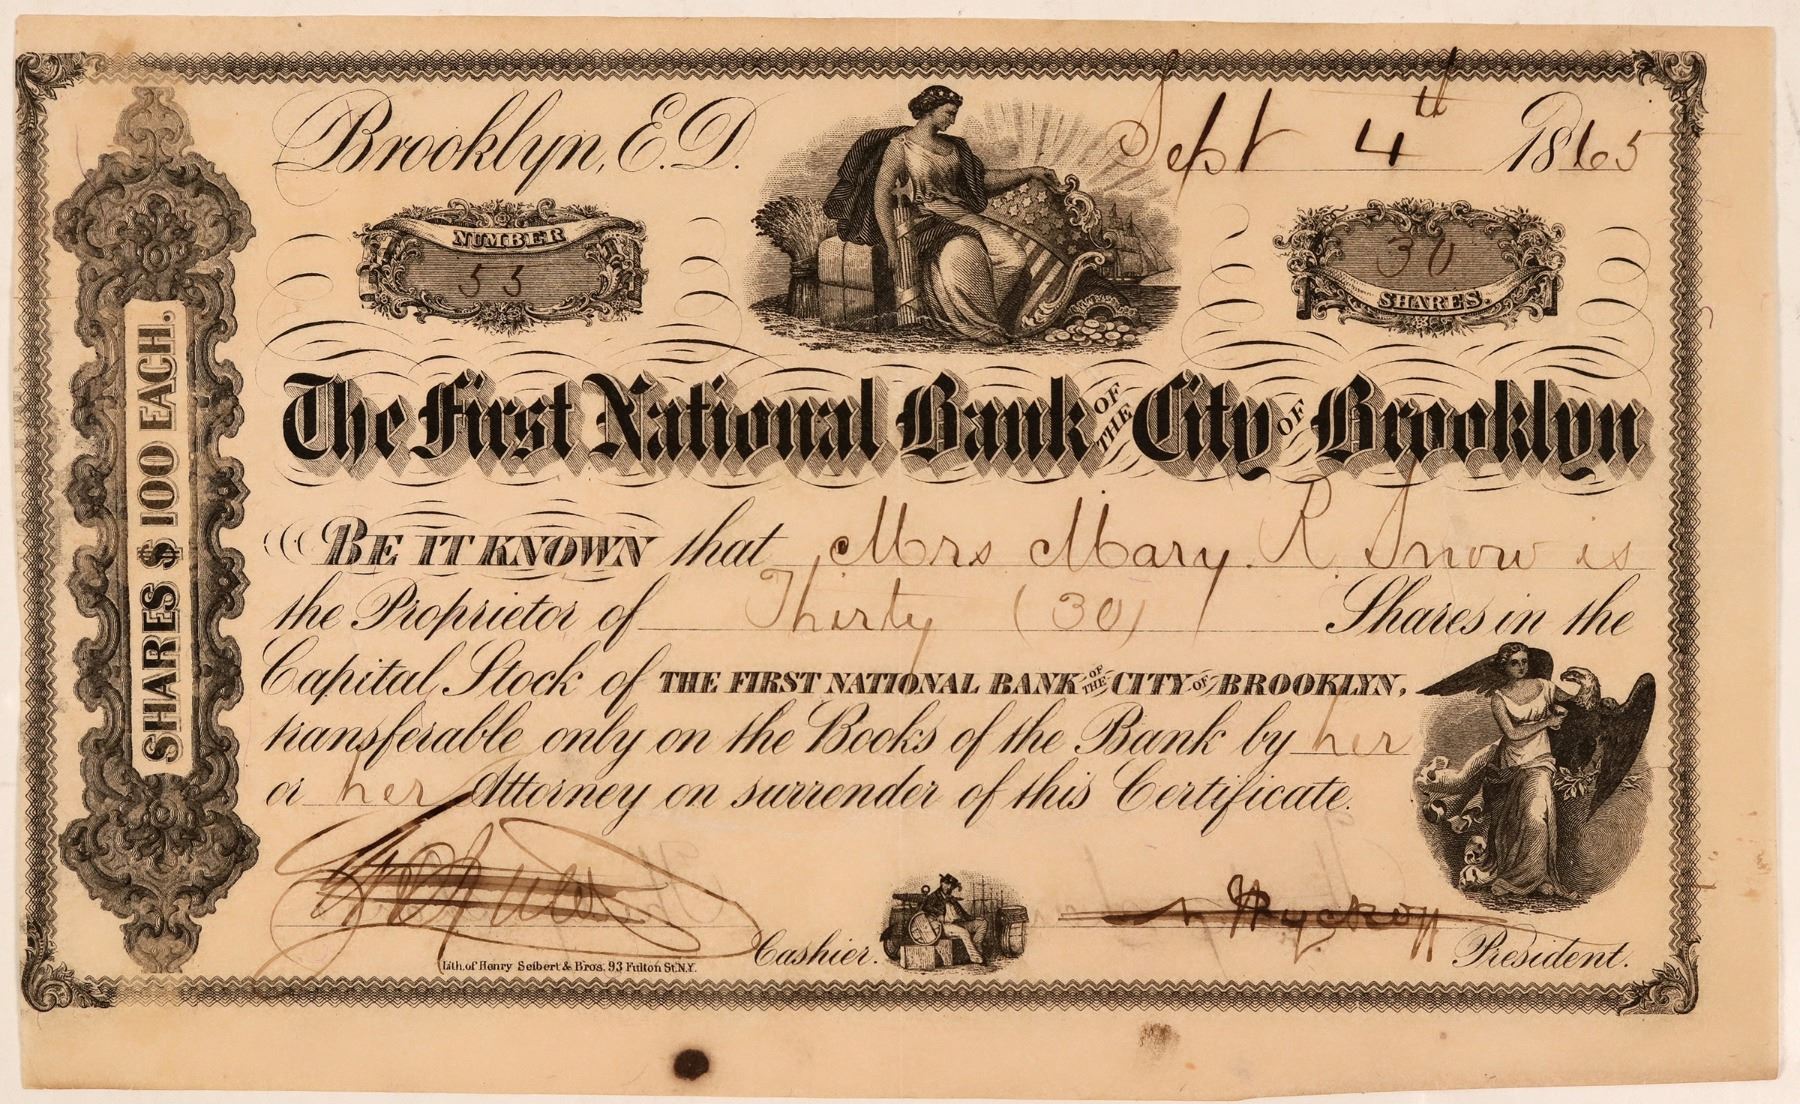 Brooklyn, E.D. Sept 4th 1865
NUMBER
55
30
SHARES.
SHARES $100 EACH.
The First National Bank OF THE City OF Brooklyn
BE IT KNOWN that Mrs Mary R Snow is
the Proprietor of Thirty (30) Shares in the
Capital Stock of THE FIRST NATIONAL BANK OF THE CITY OF BROOKLYN,
transferable only on the Books of the Bank by her
or her Attorney on surrender of this Certificate.
Wyckoff
Cashier.
President.
Lith. of Henry Seibert & Bros. 93 Fulton St. N.Y.